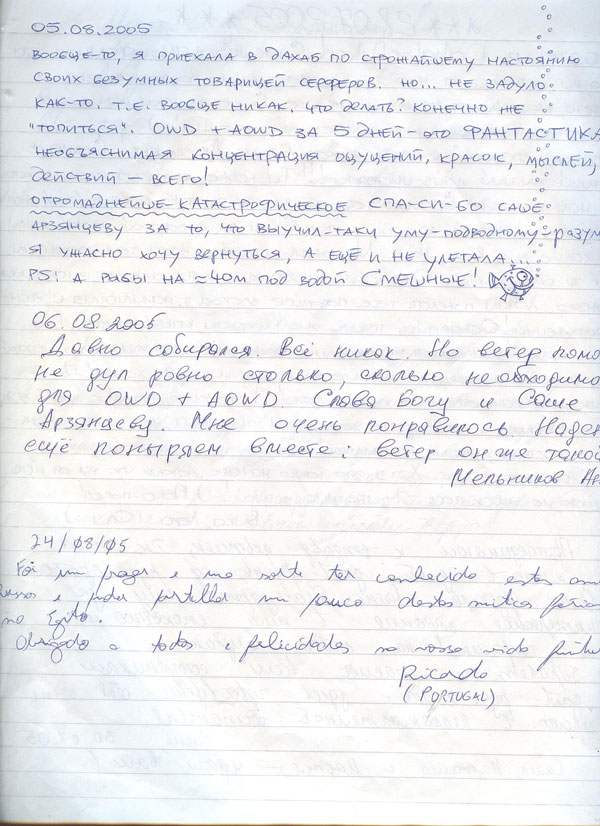 05.08.2005
ВООБЩЕ-ТО, Я ПРИЕХАЛА В ДАХАБ ПО СТРОЖАЙШЕМУ НАСТОЯНИЮ
СВОИХ БЕЗУМНЫХ ТОВАРИЩЕЙ СЕРФЕРОВ. НО... НЕ ЗАДУЛО
КАК-ТО. Т.Е. ВООБЩЕ НИКАК. ЧТО ДЕЛАТЬ? КОНЕЧНО ЖЕ
"ТОПИТЬСЯ". OWD + AOWD ЗА 5 ДНЕЙ - ЭТО ФАНТАСТИКА
НЕОБЪЯСНИМАЯ КОНЦЕНТРАЦИЯ ОЩУЩЕНИЙ, КРАСОК, МЫСЛЕЙ,
ДЕЙСТВИЙ — ВСЕГО!
ОГРОМАДНЕЙШЕ-КАТАСТРОФИЧЕСКОЕ СПА-СИ-БО САШЕ
АРЗЯНЦЕВУ ЗА ТО, ЧТО ВЫУЧИЛ-ТАКИ УМУ-ПОДВОДНОМУ-РАЗУМ
Я УЖАСНО ХОЧУ ВЕРНУТЬСЯ, А ЕЩЁ И НЕ УЛЕТАЛА...
PS: А РЫБЫ НА ≈40М ПОД ВОДОЙ СМЕШНЫЕ!
06.08.2005
Давно собирался. Всё никак. Но ветер помо
не дул ровно столько, сколько необходимо
для OWD + AOWD. Слава Богу и Саше
Арзянцеву. Мне очень понравилось Надею
ещё поныряем вместе: ветер он же такой
Мельников Ар
24/08/05
Foi um e uma sorte ter conhecido estes
e poder partilhar um pouco destas férias
no Egito.
Obrigado a todos e felicidades na vossa vida
Ricardo
(PORTUGAL)